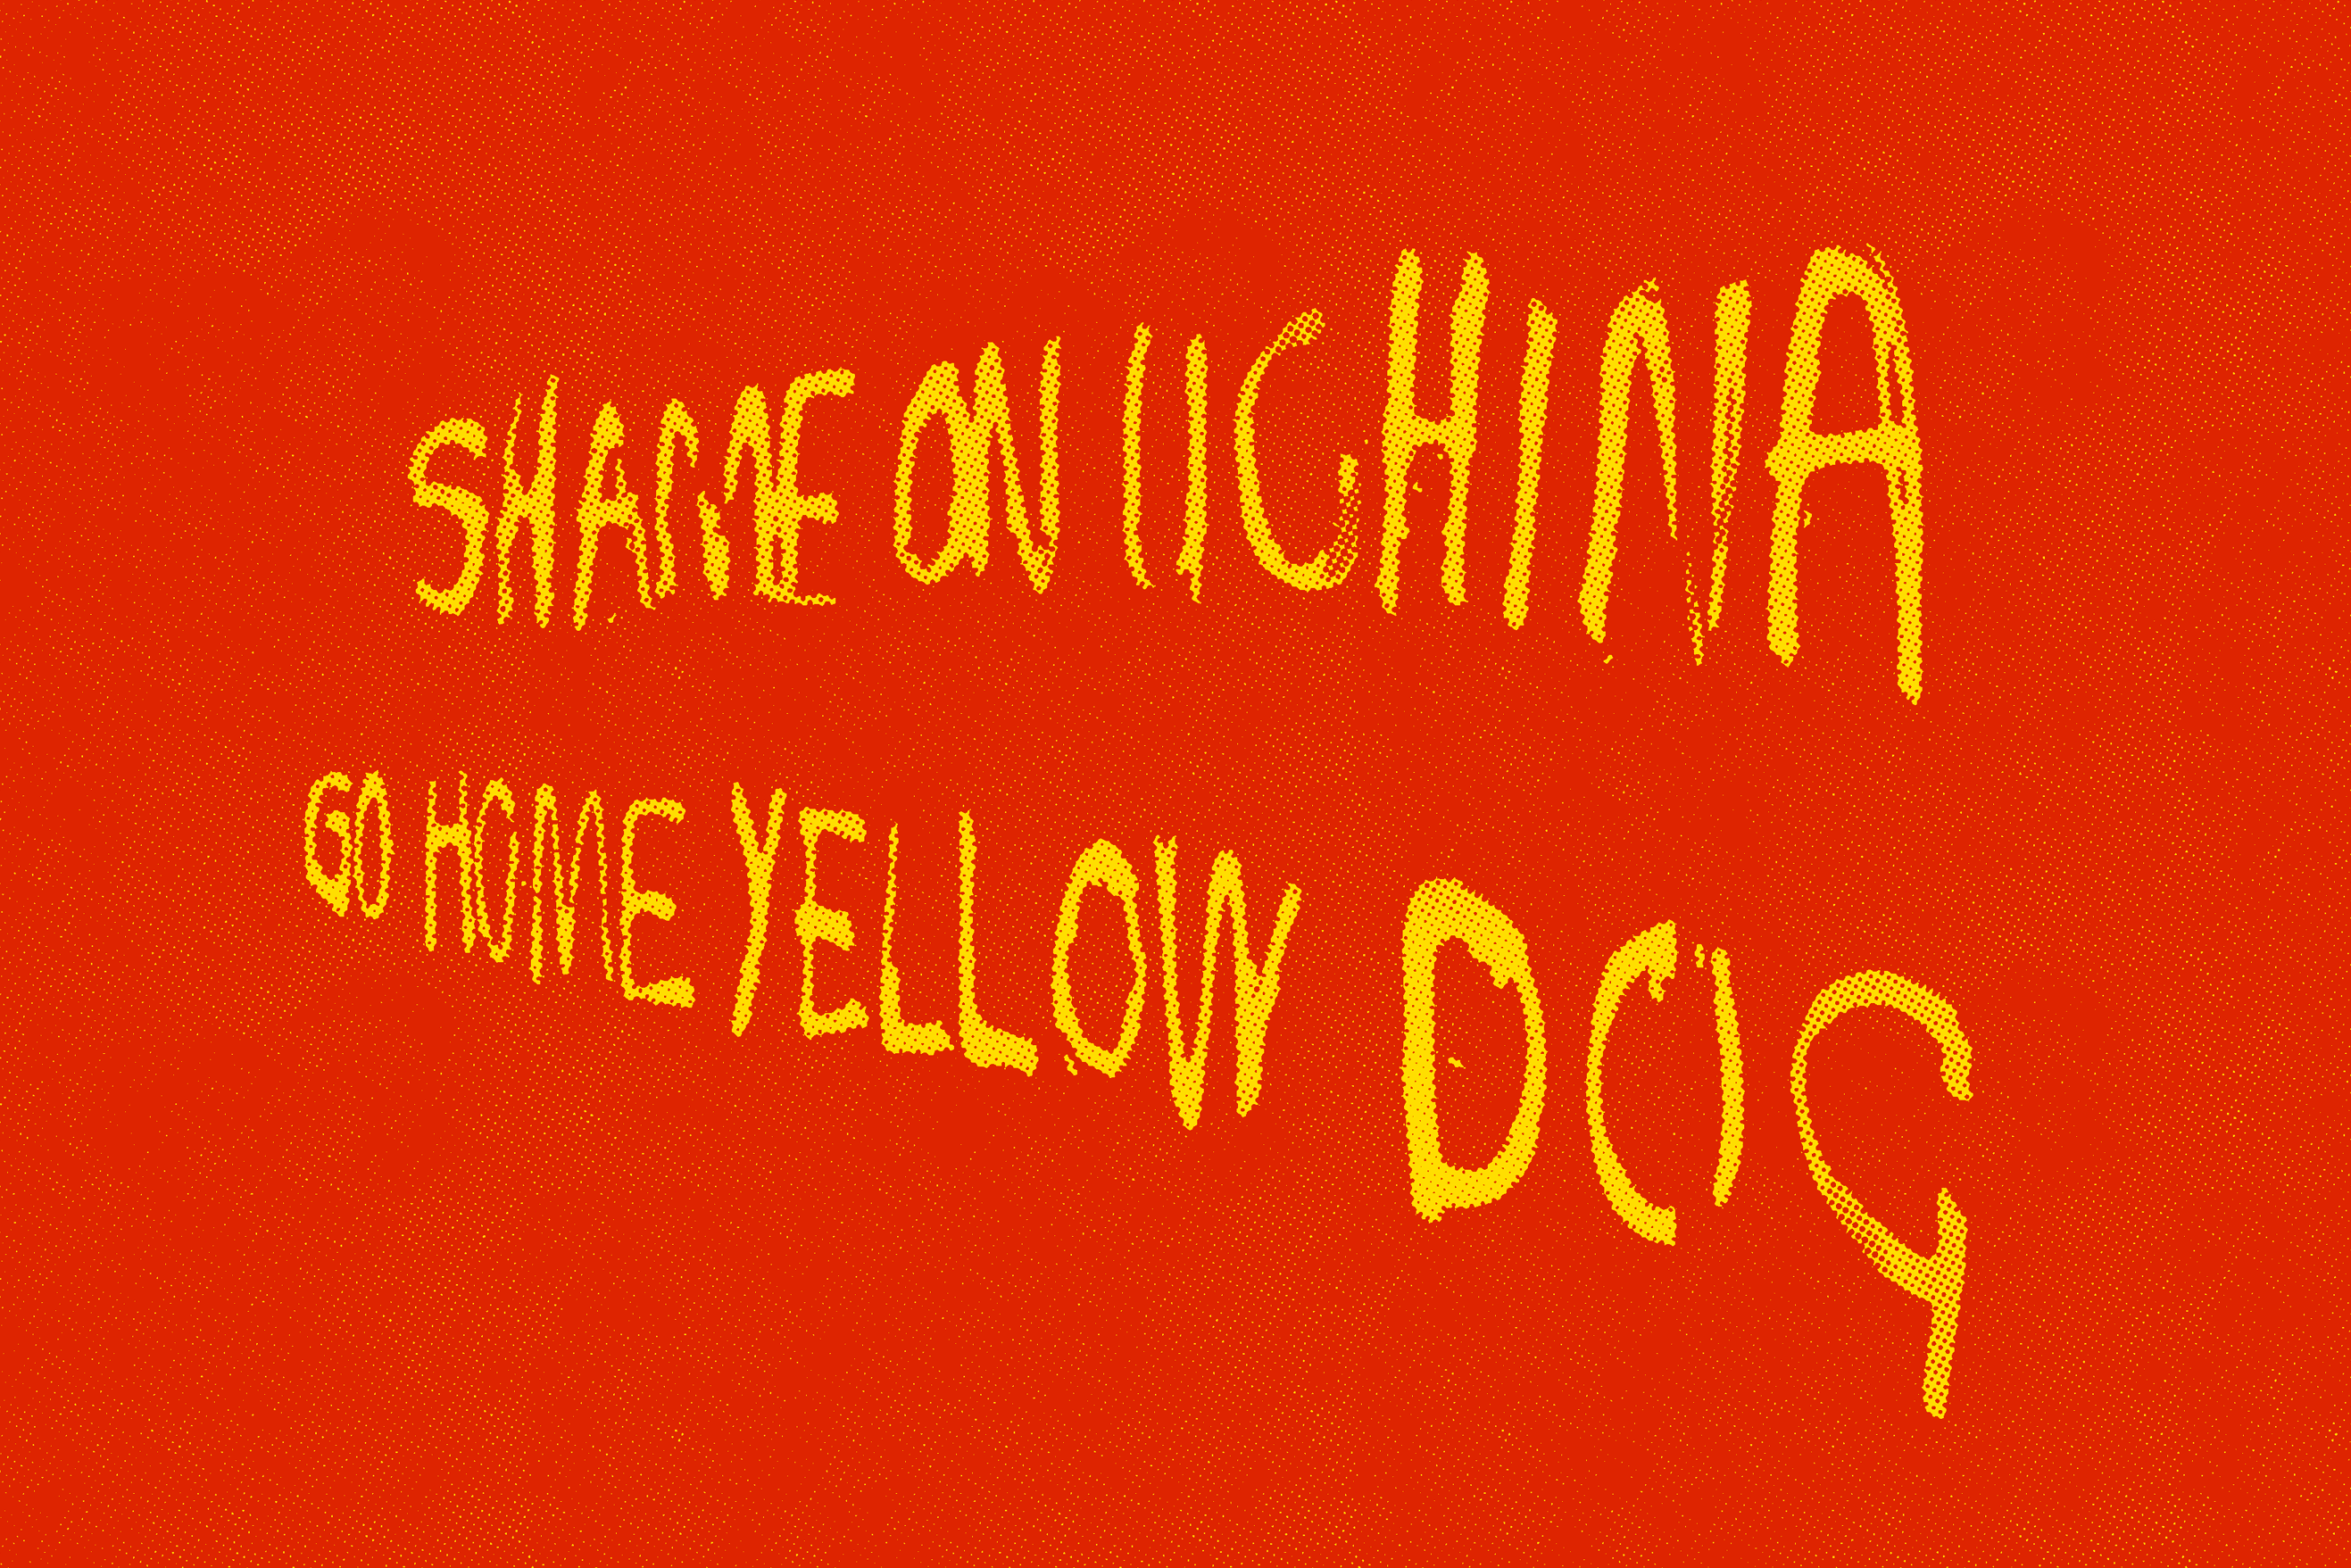 SHAME ON U CHINA
GO HOME YELLOW DOG